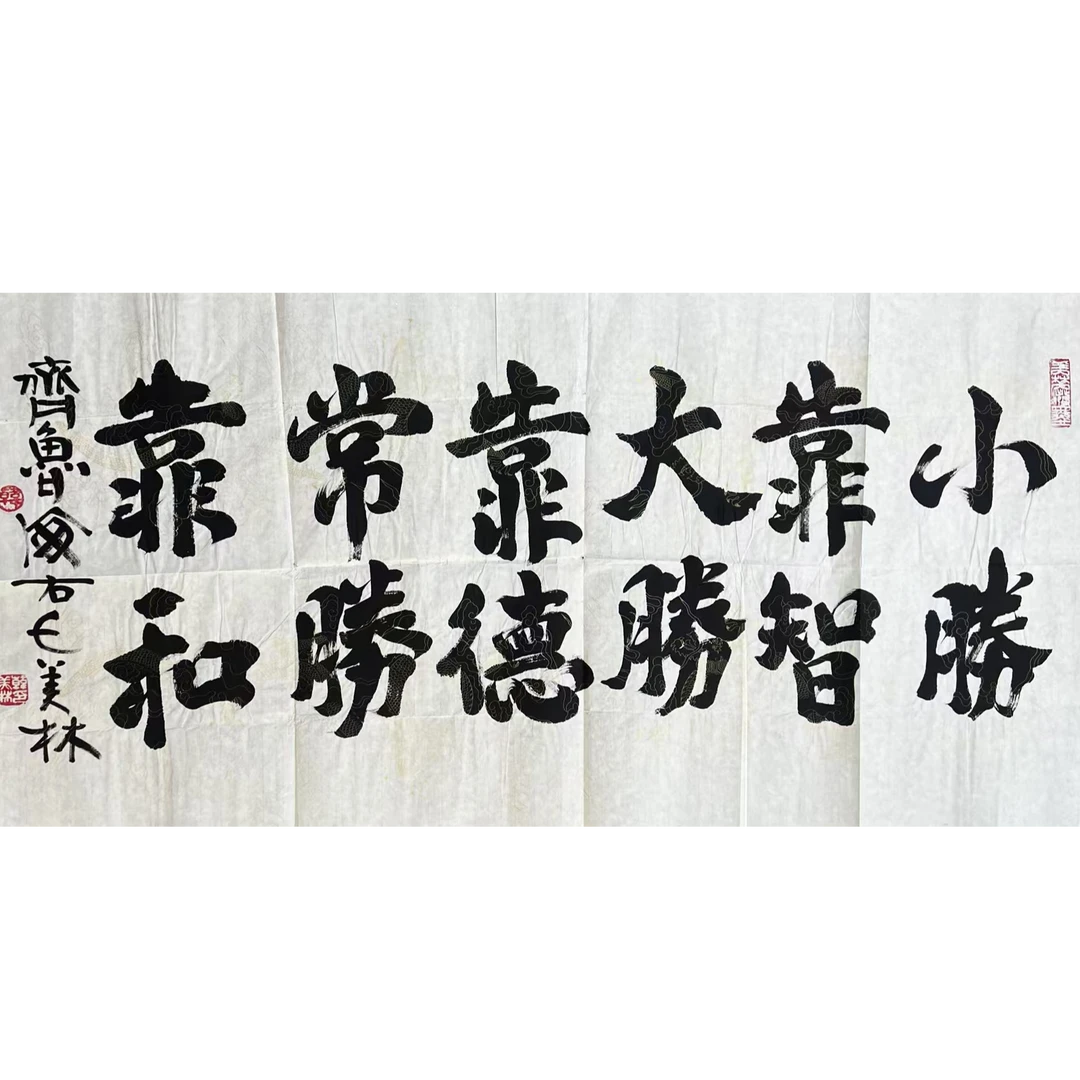 小勝
靠智
大勝
靠德
常勝
靠和
齊魯
美林